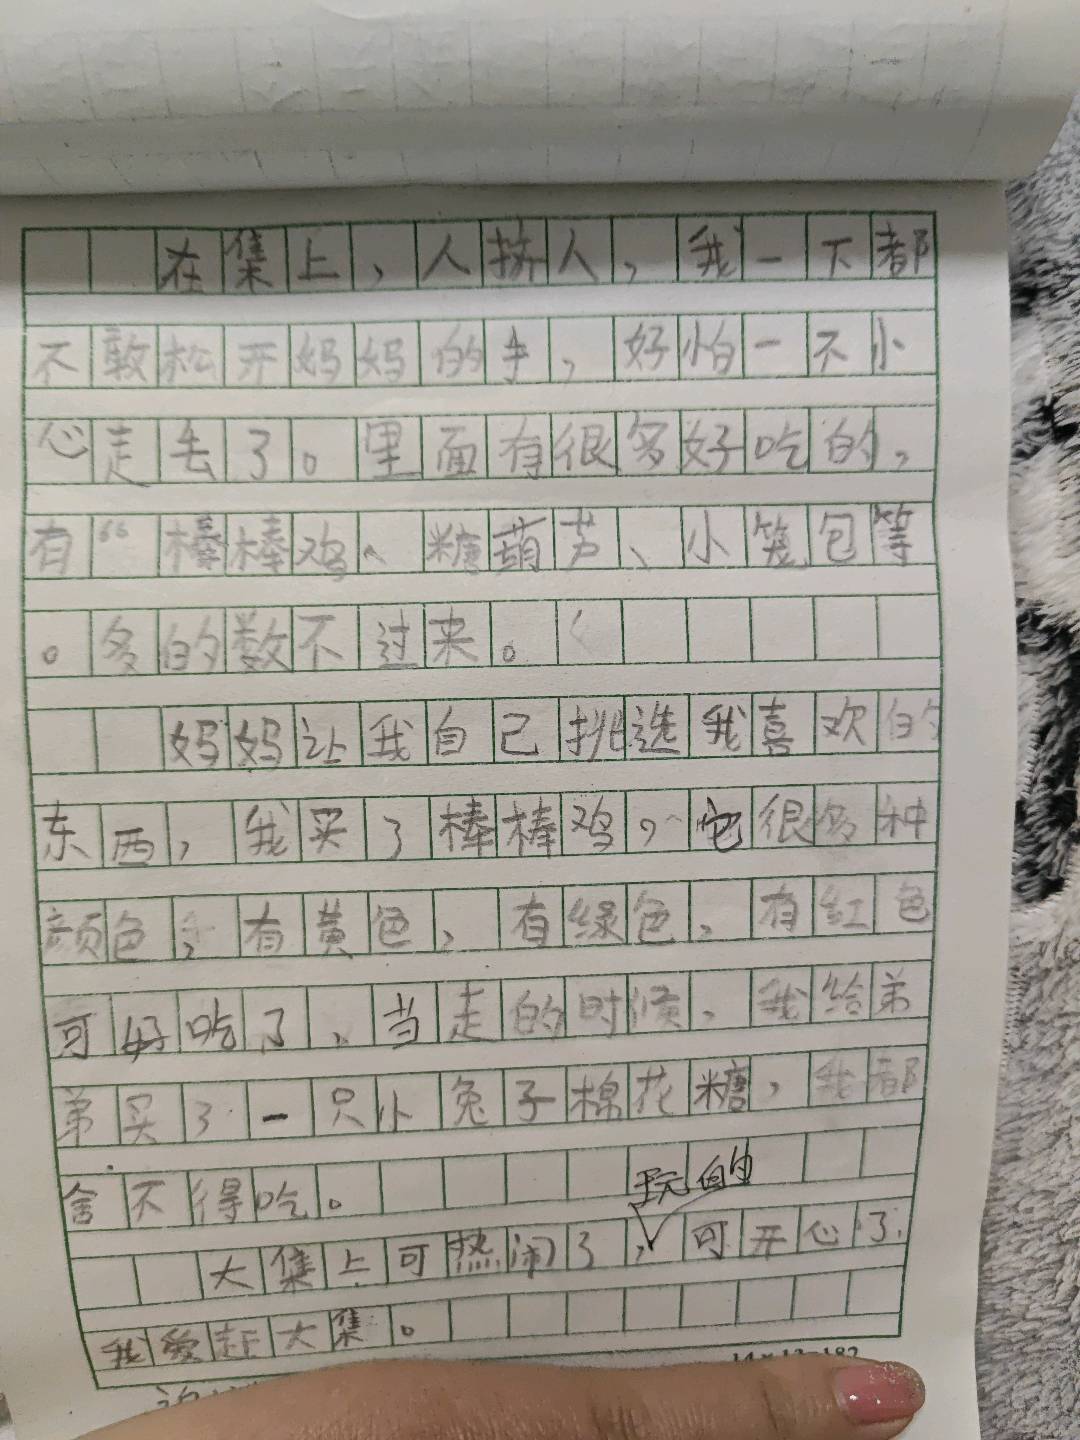 在集上，人挤人，我一下都
不敢松开妈妈的手，好怕一不小
心走丢了。里面有很多好吃的，
有“棒棒鸡、糖葫芦、小笼包等
。多的数不过来。
妈妈让我自己挑选我喜欢的
东西，我买了棒棒鸡，它很多种
颜色，有黄色，有绿色，有红色
可好吃了、当走的时候，我给弟
弟买了一只小兔子棉花糖，我都
舍不得吃。
玩的
大集上可热闹了，可开心了.
我爱赶大集。